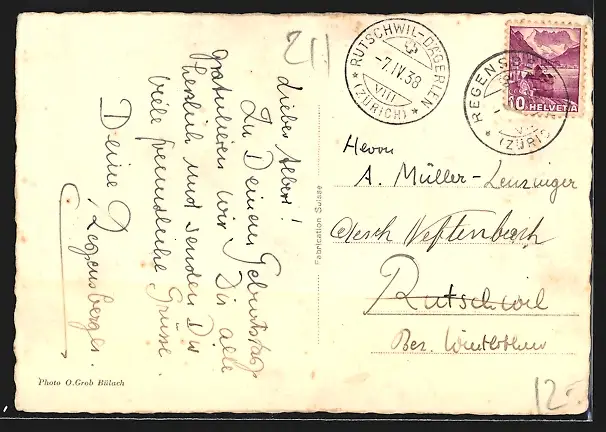 Lieber Albert!
Zu Deinem Geburtstag
gratulieren wir Dir alle
herzlich und senden Dir
viele freundliche Grüsse.
Deine Regensberger.
Photo O.Grob Bülach
Fabrication Suisse
RUTSCHWIL-DÄGERLEN
-7.IV.38
VIII
(ZÜRICH)
REGENSB
(ZÜRIC
10 HELVETIA
Herrn
A. Müller-Lenzinger
Aesch Neftenbach
Rutschwil
Bez. Winterthur
12.-